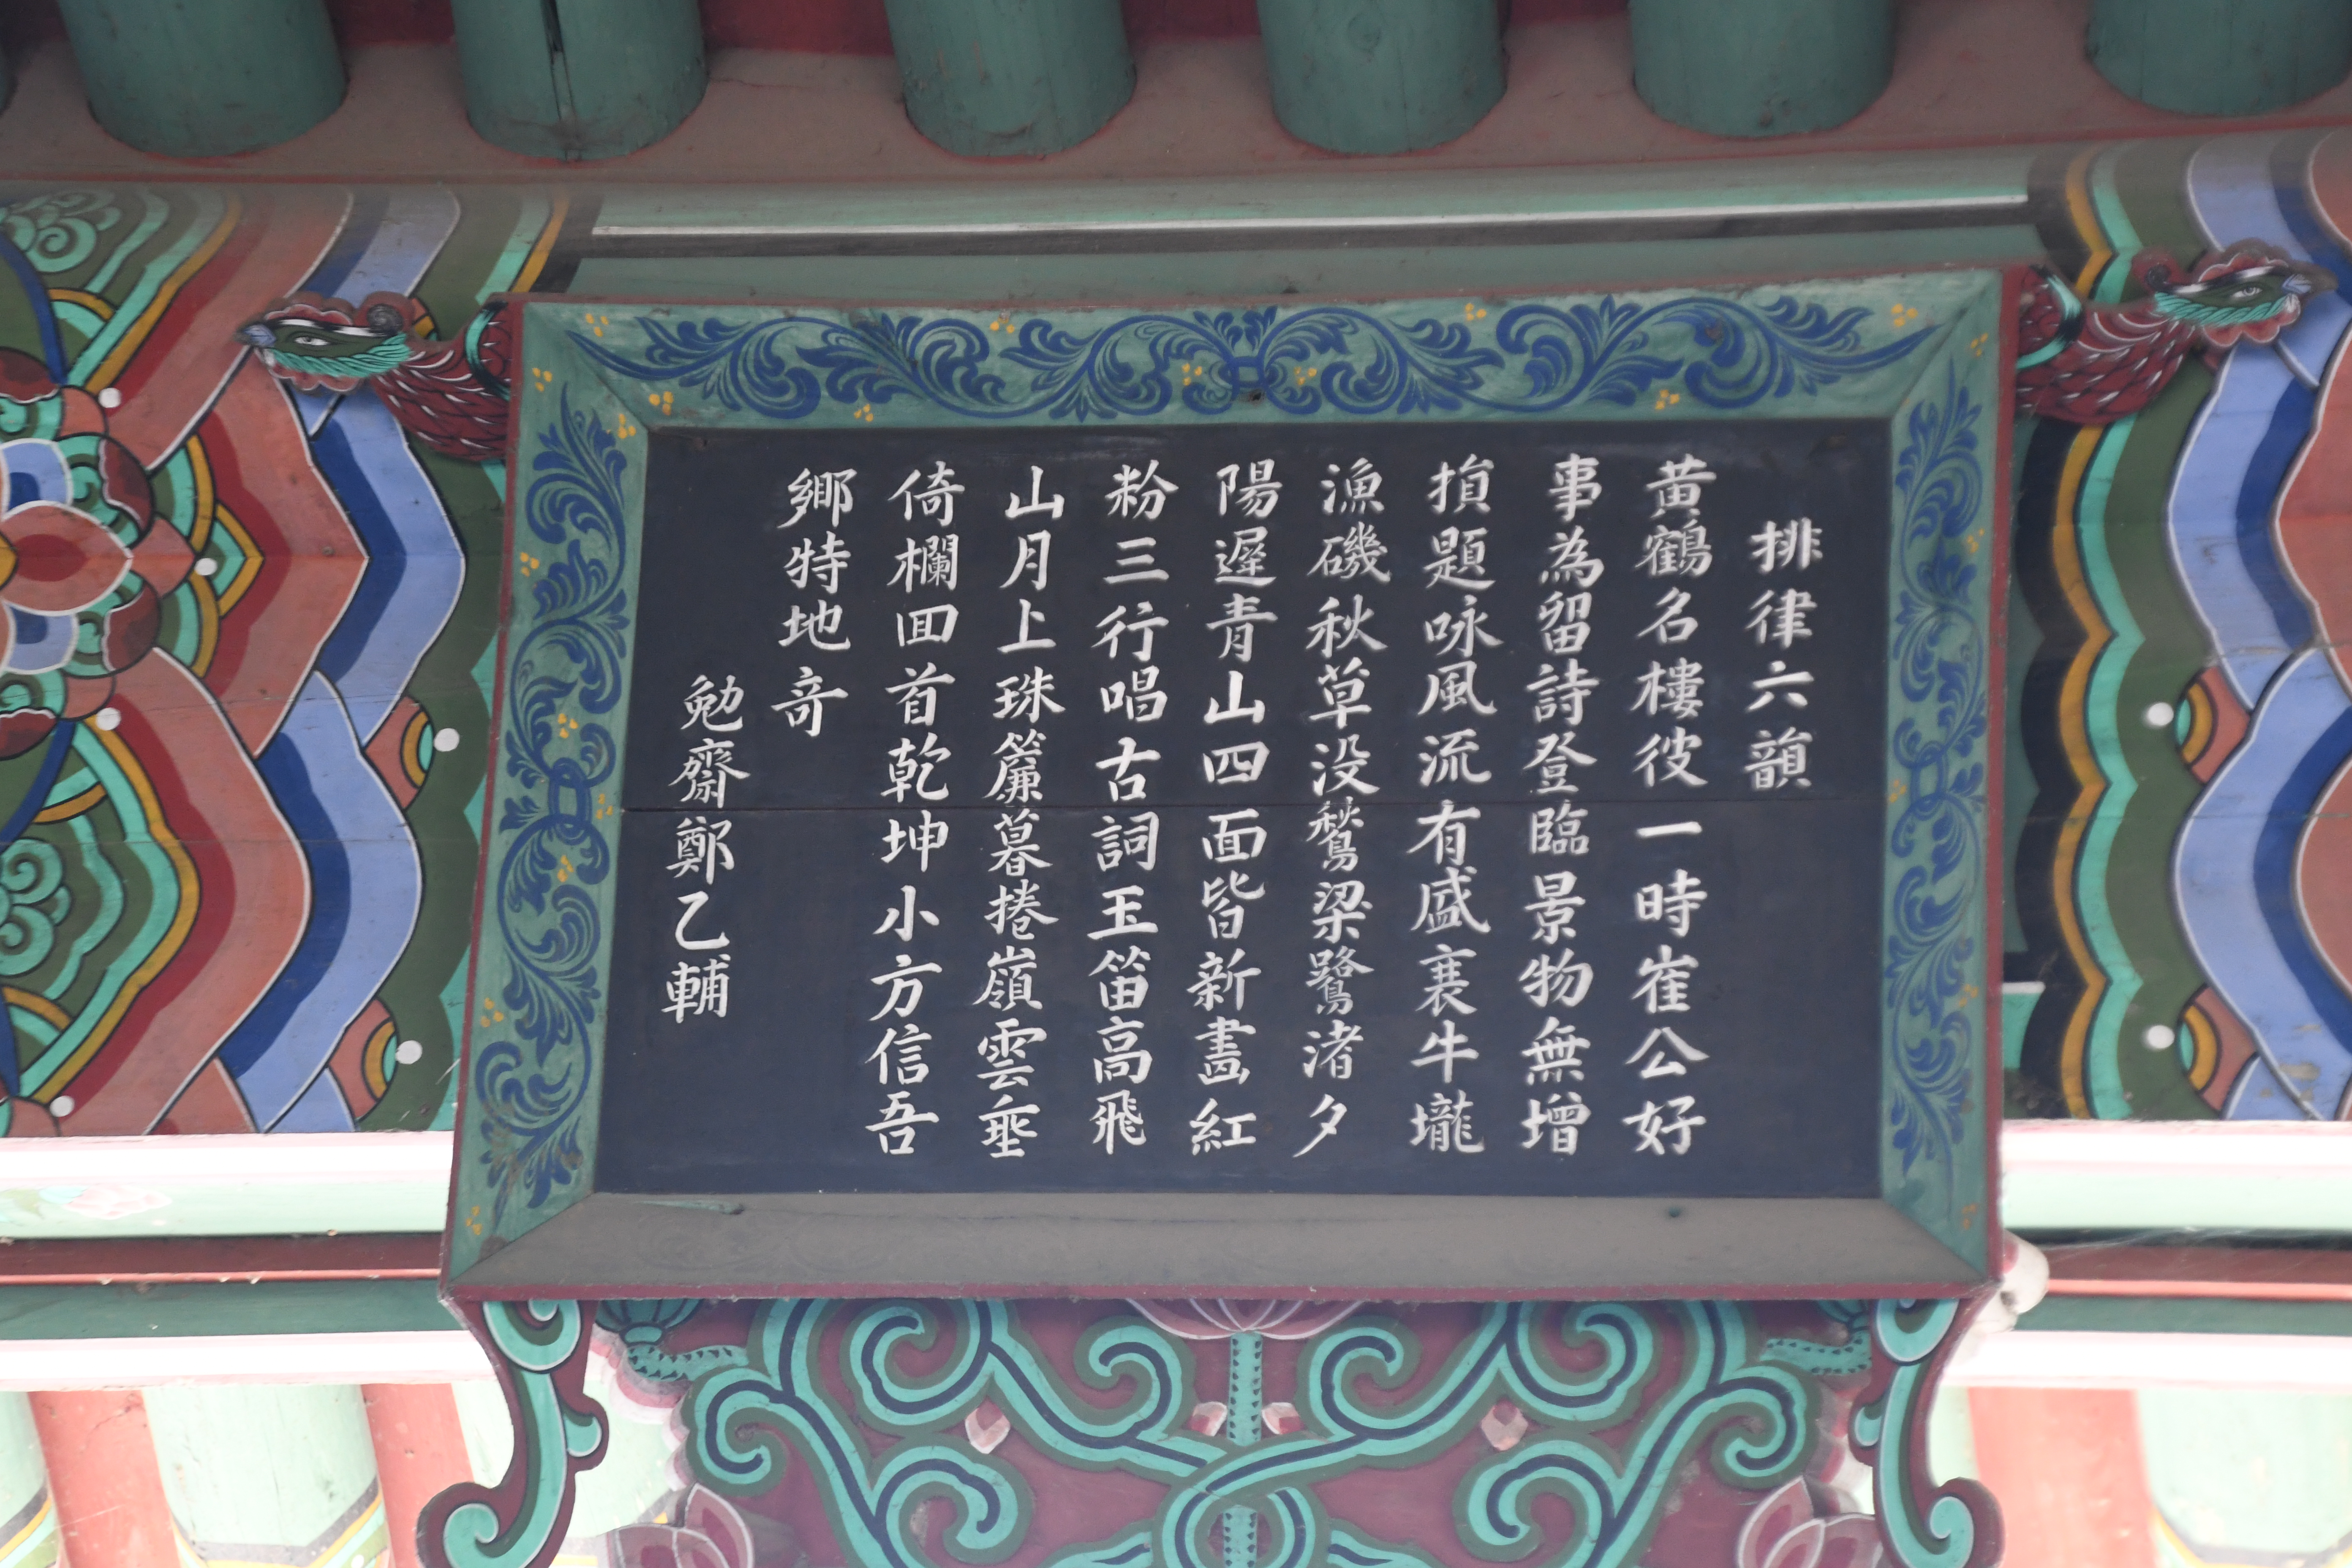 排律六韻
黄鶴名樓彼一時崔公好
事為留詩登臨景物無增
損題咏風流有盛衰牛壠
漁磯秋草没鶖梁鷺渚夕
陽遲青山四面皆新畵紅
粉三行唱古詞玉笛高飛
山月上珠簾暮捲嶺雲垂
倚欄回首乾坤小方信吾
鄉特地竒
勉齋鄭乙輔